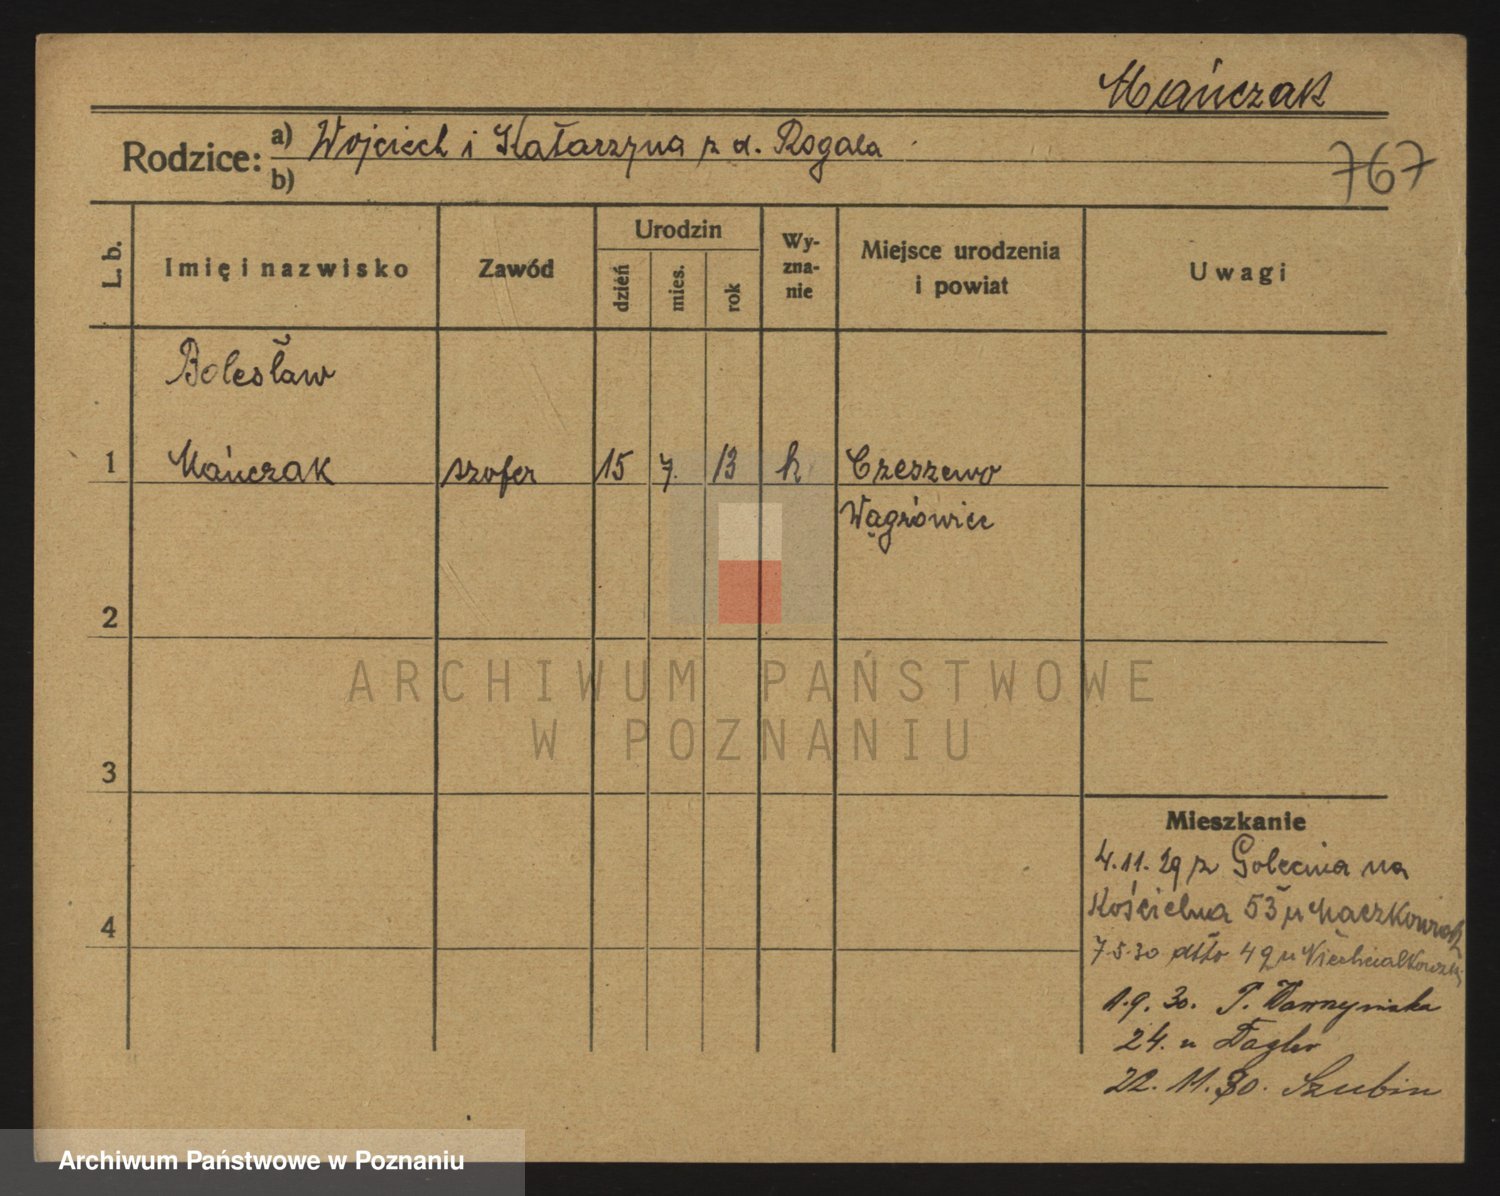 Mańczak
Rodzice: a) Wojciech i Katarzyna z d. Rogala
b)
767
L. b.
Imię i nazwisko
Zawód
Urodzin
dzień
mies.
rok
Wy-
zna-
nie
Miejsce urodzenia
i powiat
Uwagi
Bolesław
1 Mańczak szofer 15 7. 13 k Czeszewo
Wągrówiec
2
3
4
ARCHIWUM PAŃSTWOWE
W POZNANIU
Mieszkanie
4.11.29 z Golecina na
Kościelna 53 u Maczkowiak
7.5.30 dtto 49 u
1.9.30. P. Wawrzyniaka
24. u
22.11.30. Szubin
Archiwum Państwowe w Poznaniu